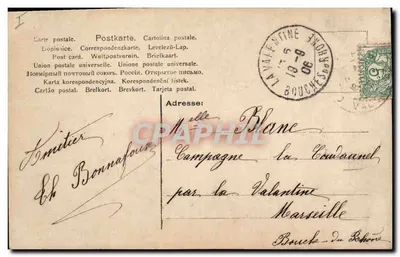 Carte postale. Postkarte. Cartolina postale.
Dopisnice. Correspondenzkarte. Levelező-Lap.
Post card. Weltpostverein. Briefkaart.
Union postale universelle. Unione postale universale.
Всемірный почтовый союзъ. Россія. Открытое письмо.
Karta korespondencyjna. Korespondenční lístek.
Cartão postal. Brefkort. Brevkort. Tarjeta postal.
LA VALENTINE
BOUCHES DU RHONE
06
5
Adresse:
Melle Blanc
Campagne la
par la Valentine
Marseille
Bouch-du-Rhône
Amitiés
Ch Bonnafoux
CPA